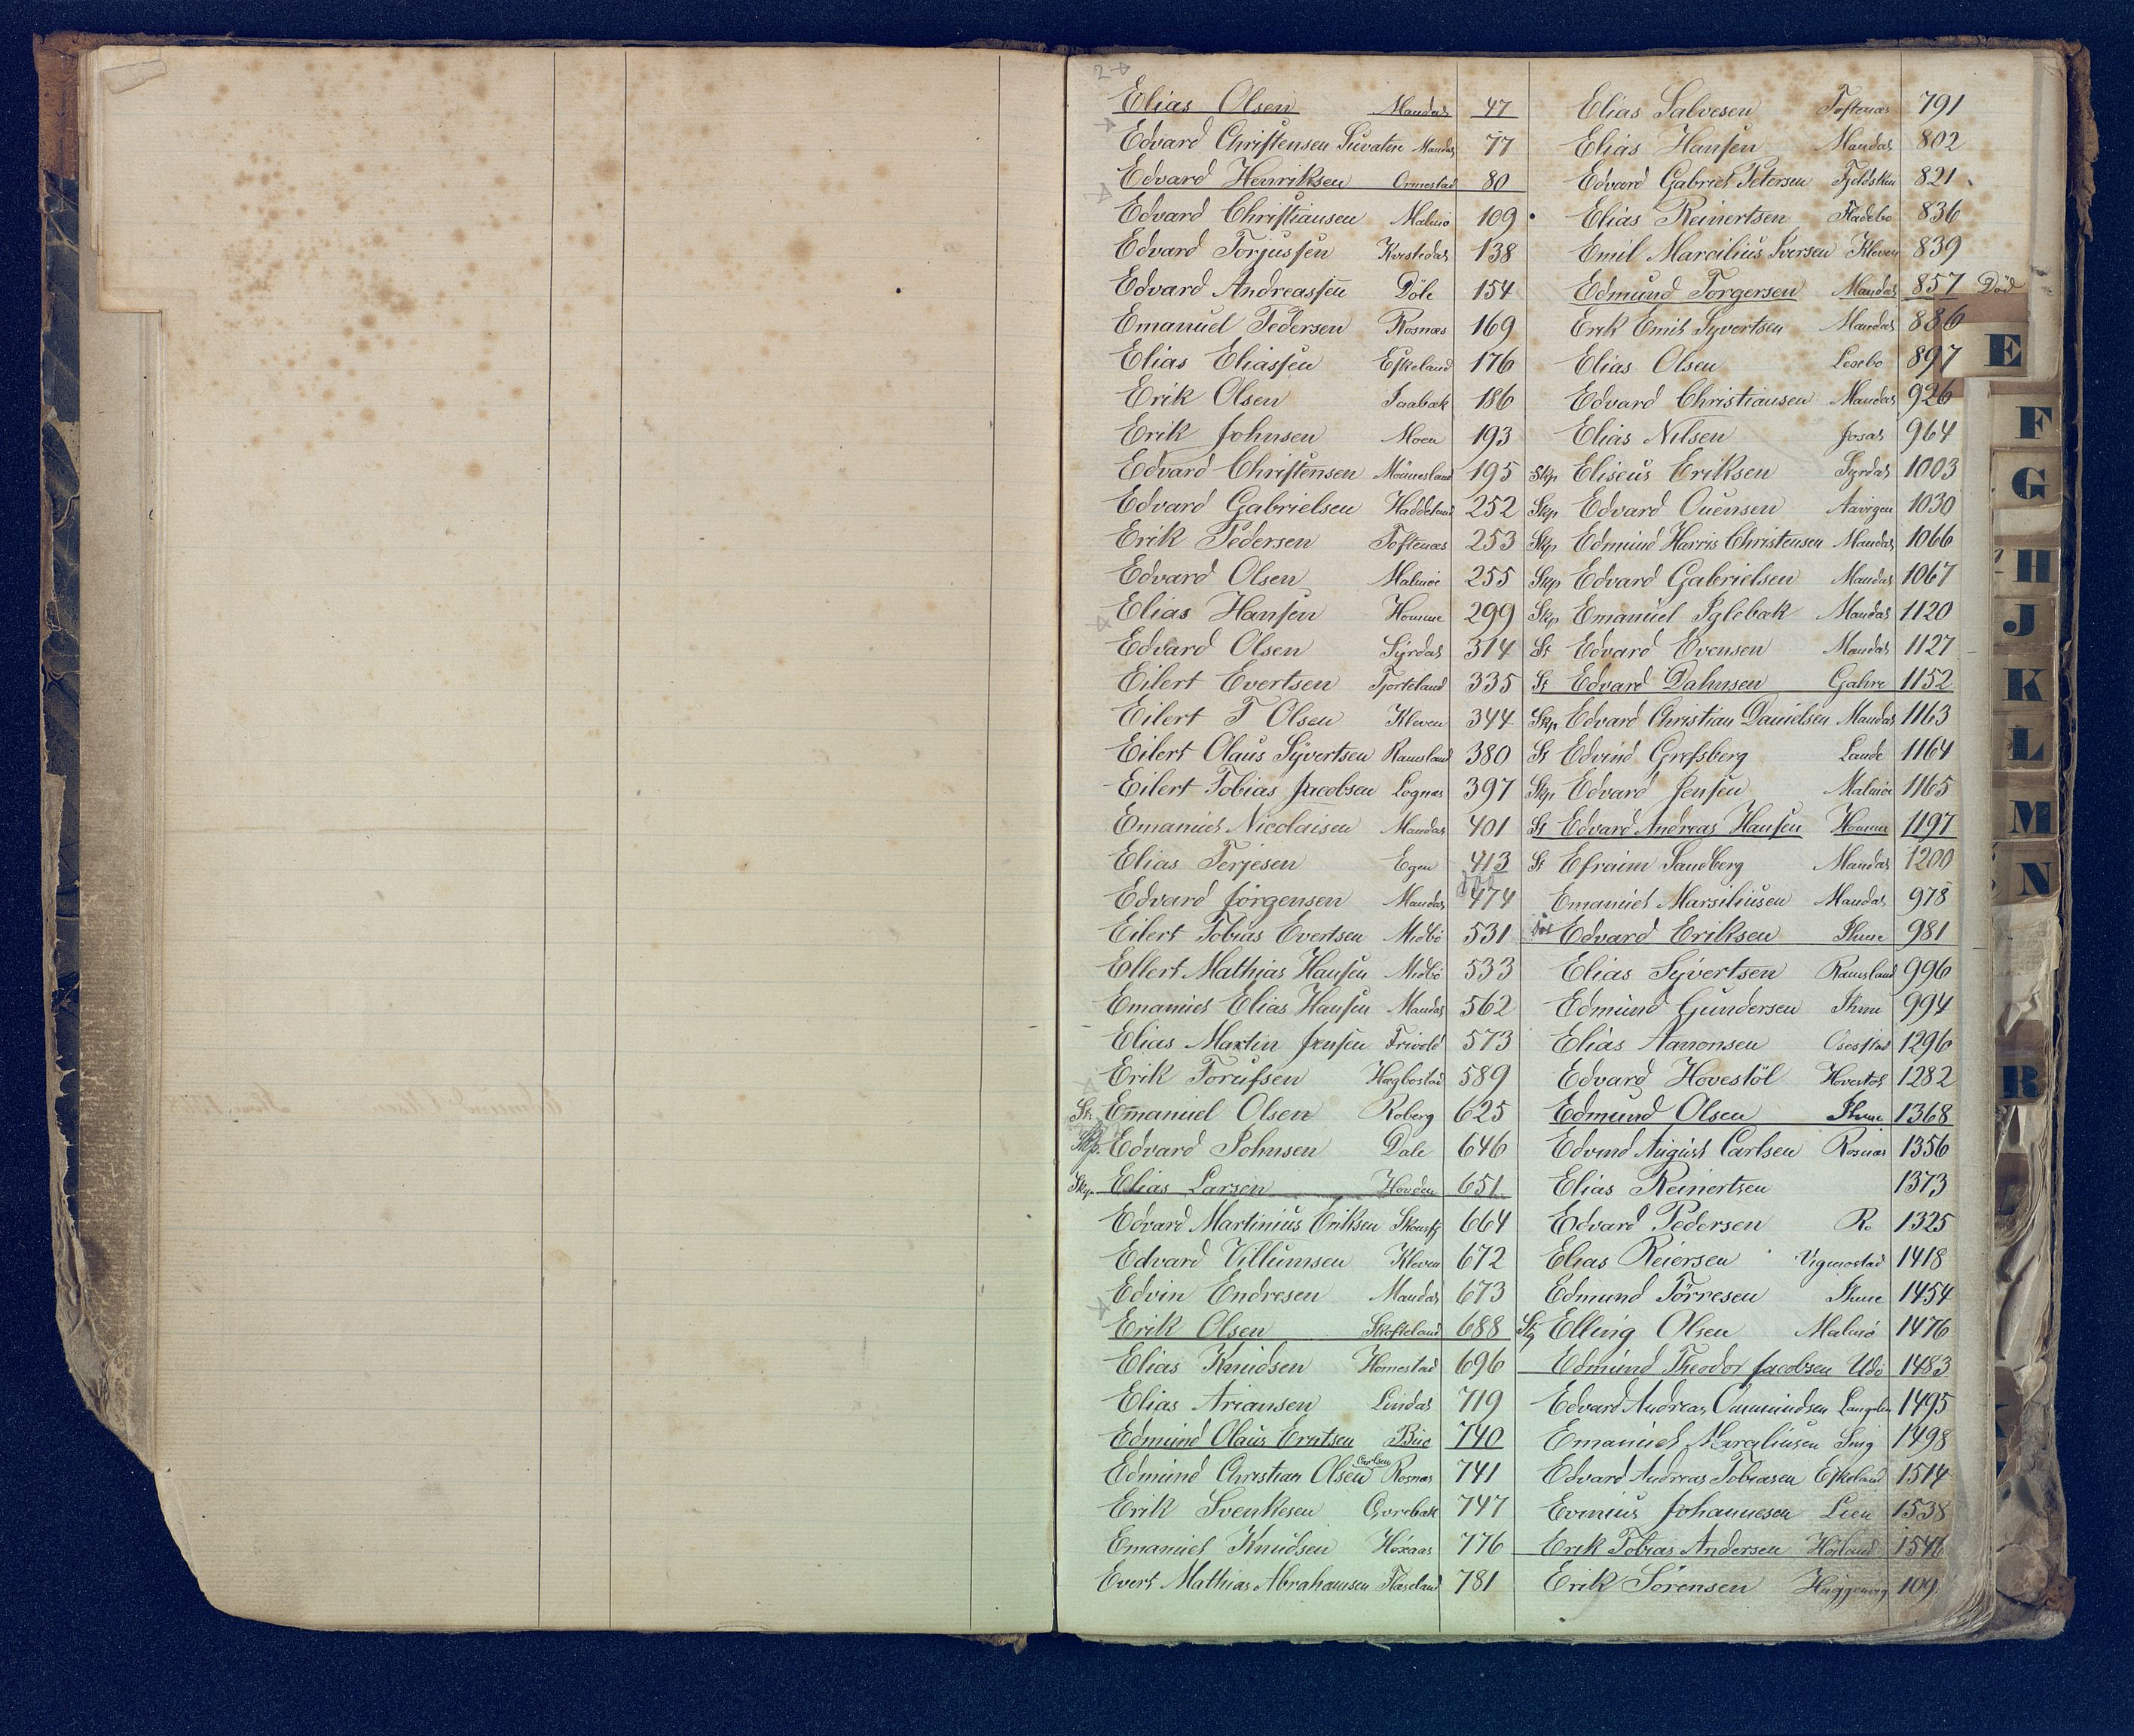 Elias Olsen Mandal 47
Edvard Christensen Mandal 77
Edvard Henriksen Ormestad 80
Edvard Christiansen Malmö 109
Edvard Torjussen 138
Edvard Andreassen Döle 154
Emanuel Pedersen Rosnæs 169
Elias Eliassen Eskeland 176
Erik Olsen Faabæk 186
Erik Johnsen Moen 193
Edvard Christensen Mönnesland 195
Edvard Gabrielsen Haddeland 252
Erik Pedersen Toftenæs 253
Edvard Olsen Malmöe 255
Elias Hansen Homme 299
Edvard Olsen Syrdal 314
Eilert Evertsen Tjorteland 335
Eilert T Olsen Kleven 344
Eilert Olaus Syvertsen Ramsland 380
Eilert Tobias Jacobsen Lognæs 397
Emanuel Nicolaisen Mandal 401
Elias Terjesen Egen 413
Edvard Jörgensen Mandal 474
Eilert Tobias Evertsen Midbö 531
Ellert Mathias Hansen Midbö 533
Emanuel Elias Hansen Mandal 562
Elias Martin Jensen Trivold 573
Erik Torufsen Hægbostad 589
St. Emanuel Olsen Roberg 625
Skp. Edvard Johnsen Dale 646
Skp. Elias Larsen Hovden 651
Edvard Martinius Eriksen 664
Edvard Villumsen Kleven 672
Edvin Endresen Mandal 673
Erik Olsen Skofteland 688
Elias Knudsen Homestad 696
Elias Ariansen Lindal 719
Edmund Olaus Erntsen Bue 740
Edmund Christian Olsen Carlsen Rosnæs 741
Erik Svenkesen Gvrebæk 747
Emanuel Knudsen Höxaas 776
Evert Mathias Abrahamsen Flaseland 781
Elias Salvesen Toftenæs 791
Elias Hansen Mandal 802
Edvard Gabriel Petersen Fjeldskin 821
Elias Reinertsen Fladebo 836
Emil Marcilius Iversen Kleven 839
Edmund Torgersen Mandal 857 Död
Erik Emil Syvertsen Mandal 886
Elias Olsen Losebo 897
Edvard Christiansen Mandal 926
Elias Nilsen Josdal 964
Skp Eliseus Eriksen Syrdal 1003
Skp Edvard Ouensen Aavigen 1030
Skp Edmund Harris Christensen Mandal 1066
Skp Edvard Gabrielsen Mandal 1067
Skp Emanuel Iglebæk Mandal 1120
St Edvard Evensen Mandal 1127
St Edvard Dahnsen Gahre 1152
Skp Edvard Christian Danielsen Mandal 1163
St Edvind Grefsberg Lande 1164
Skp Edvard Jensen Malmöe 1165
St Edvard Andreas Hansen Homme 1197
St Efraim Sandberg Mandal 1200
Emanuel Marsiliusen Mandal 978
död Edvard Eriksen Ihme 981
Elias Syvertsen Ramsland 996
Edmund Gundersen Ihme 994
Elias Aanonsen Osestad 1296
Edvard Hovestöl Hovestöl 1282
Edmund Olsen Ihme 1368
Edvind August Carlsen Rosnæs 1356
Elias Reinertsen 1373
Edvard Pedersen Ro 1325
Elias Reiersen Vigmostad 1418
Edmund Törresen Ihme 1454
Elling Olsen Malmö 1476
Edmund Theodor Jacobsen Udö 1483
Edvard Andreas Ommundsen 1495
Emanuel Marciliusen 1498
Edvard Andreas Tobiasen Eskeland 1514
Evinius Johannesen Lien 1538
Erik Tobias Andersen Höiland 1546
Erik Sörensen 109
E
F
G
H
J
K
L
M
N
R